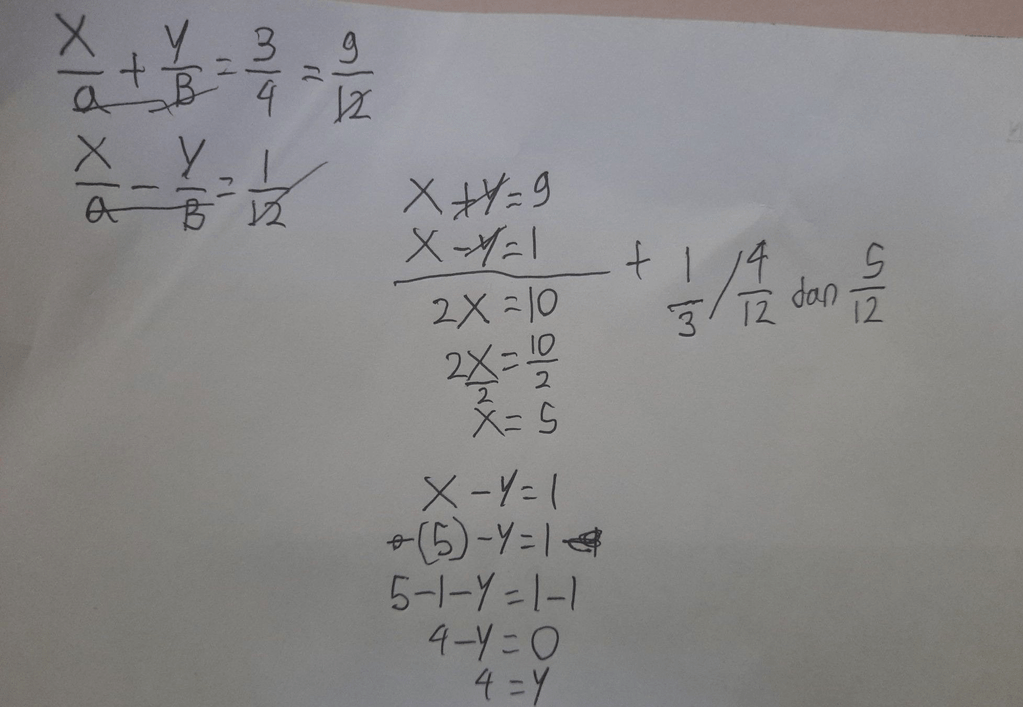 X/a + Y/B = 3/4 = 9/12
X/a - Y/B = 1/12
X + Y = 9
X - Y = 1
+
2X = 10
2X/2 = 10/2
X = 5
1/3 / 4/12 dan 5/12
X - Y = 1
(5) - Y = 1
5 - 1 - Y = 1 - 1
4 - Y = 0
4 = Y